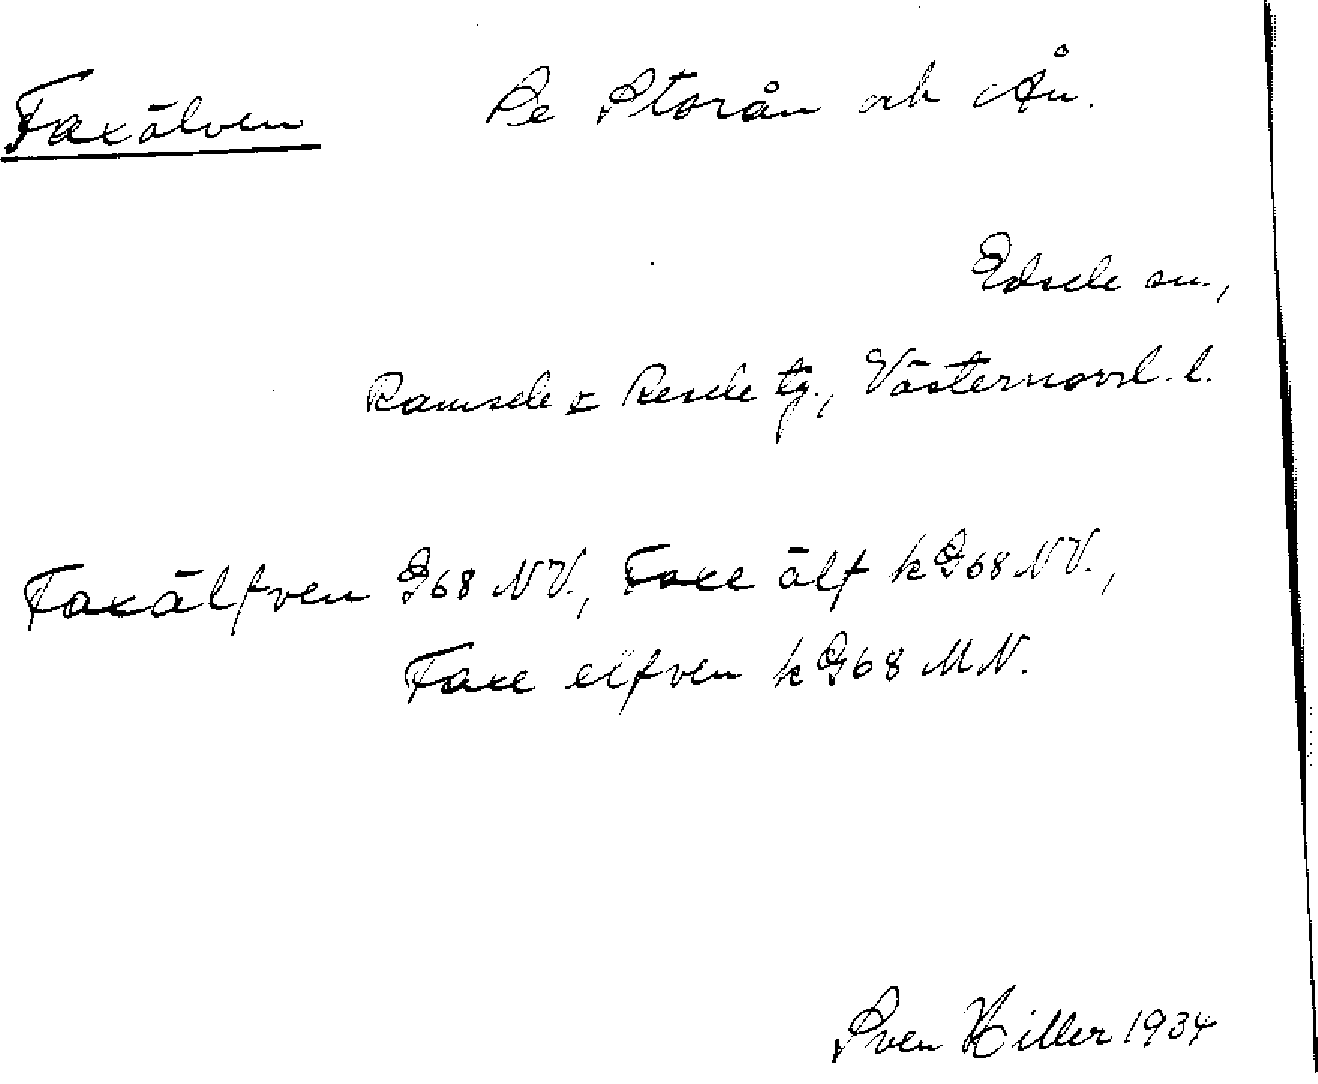 Faxälven Se Storån och Ån.
Edsele sn.,
Ramsele & Resele tg., Västernorrl. l.
Faxälfven G68 NV., Faxe älf kG68 NV.,
Faxe elfven kG68 MN.
Sven Hiller 1934